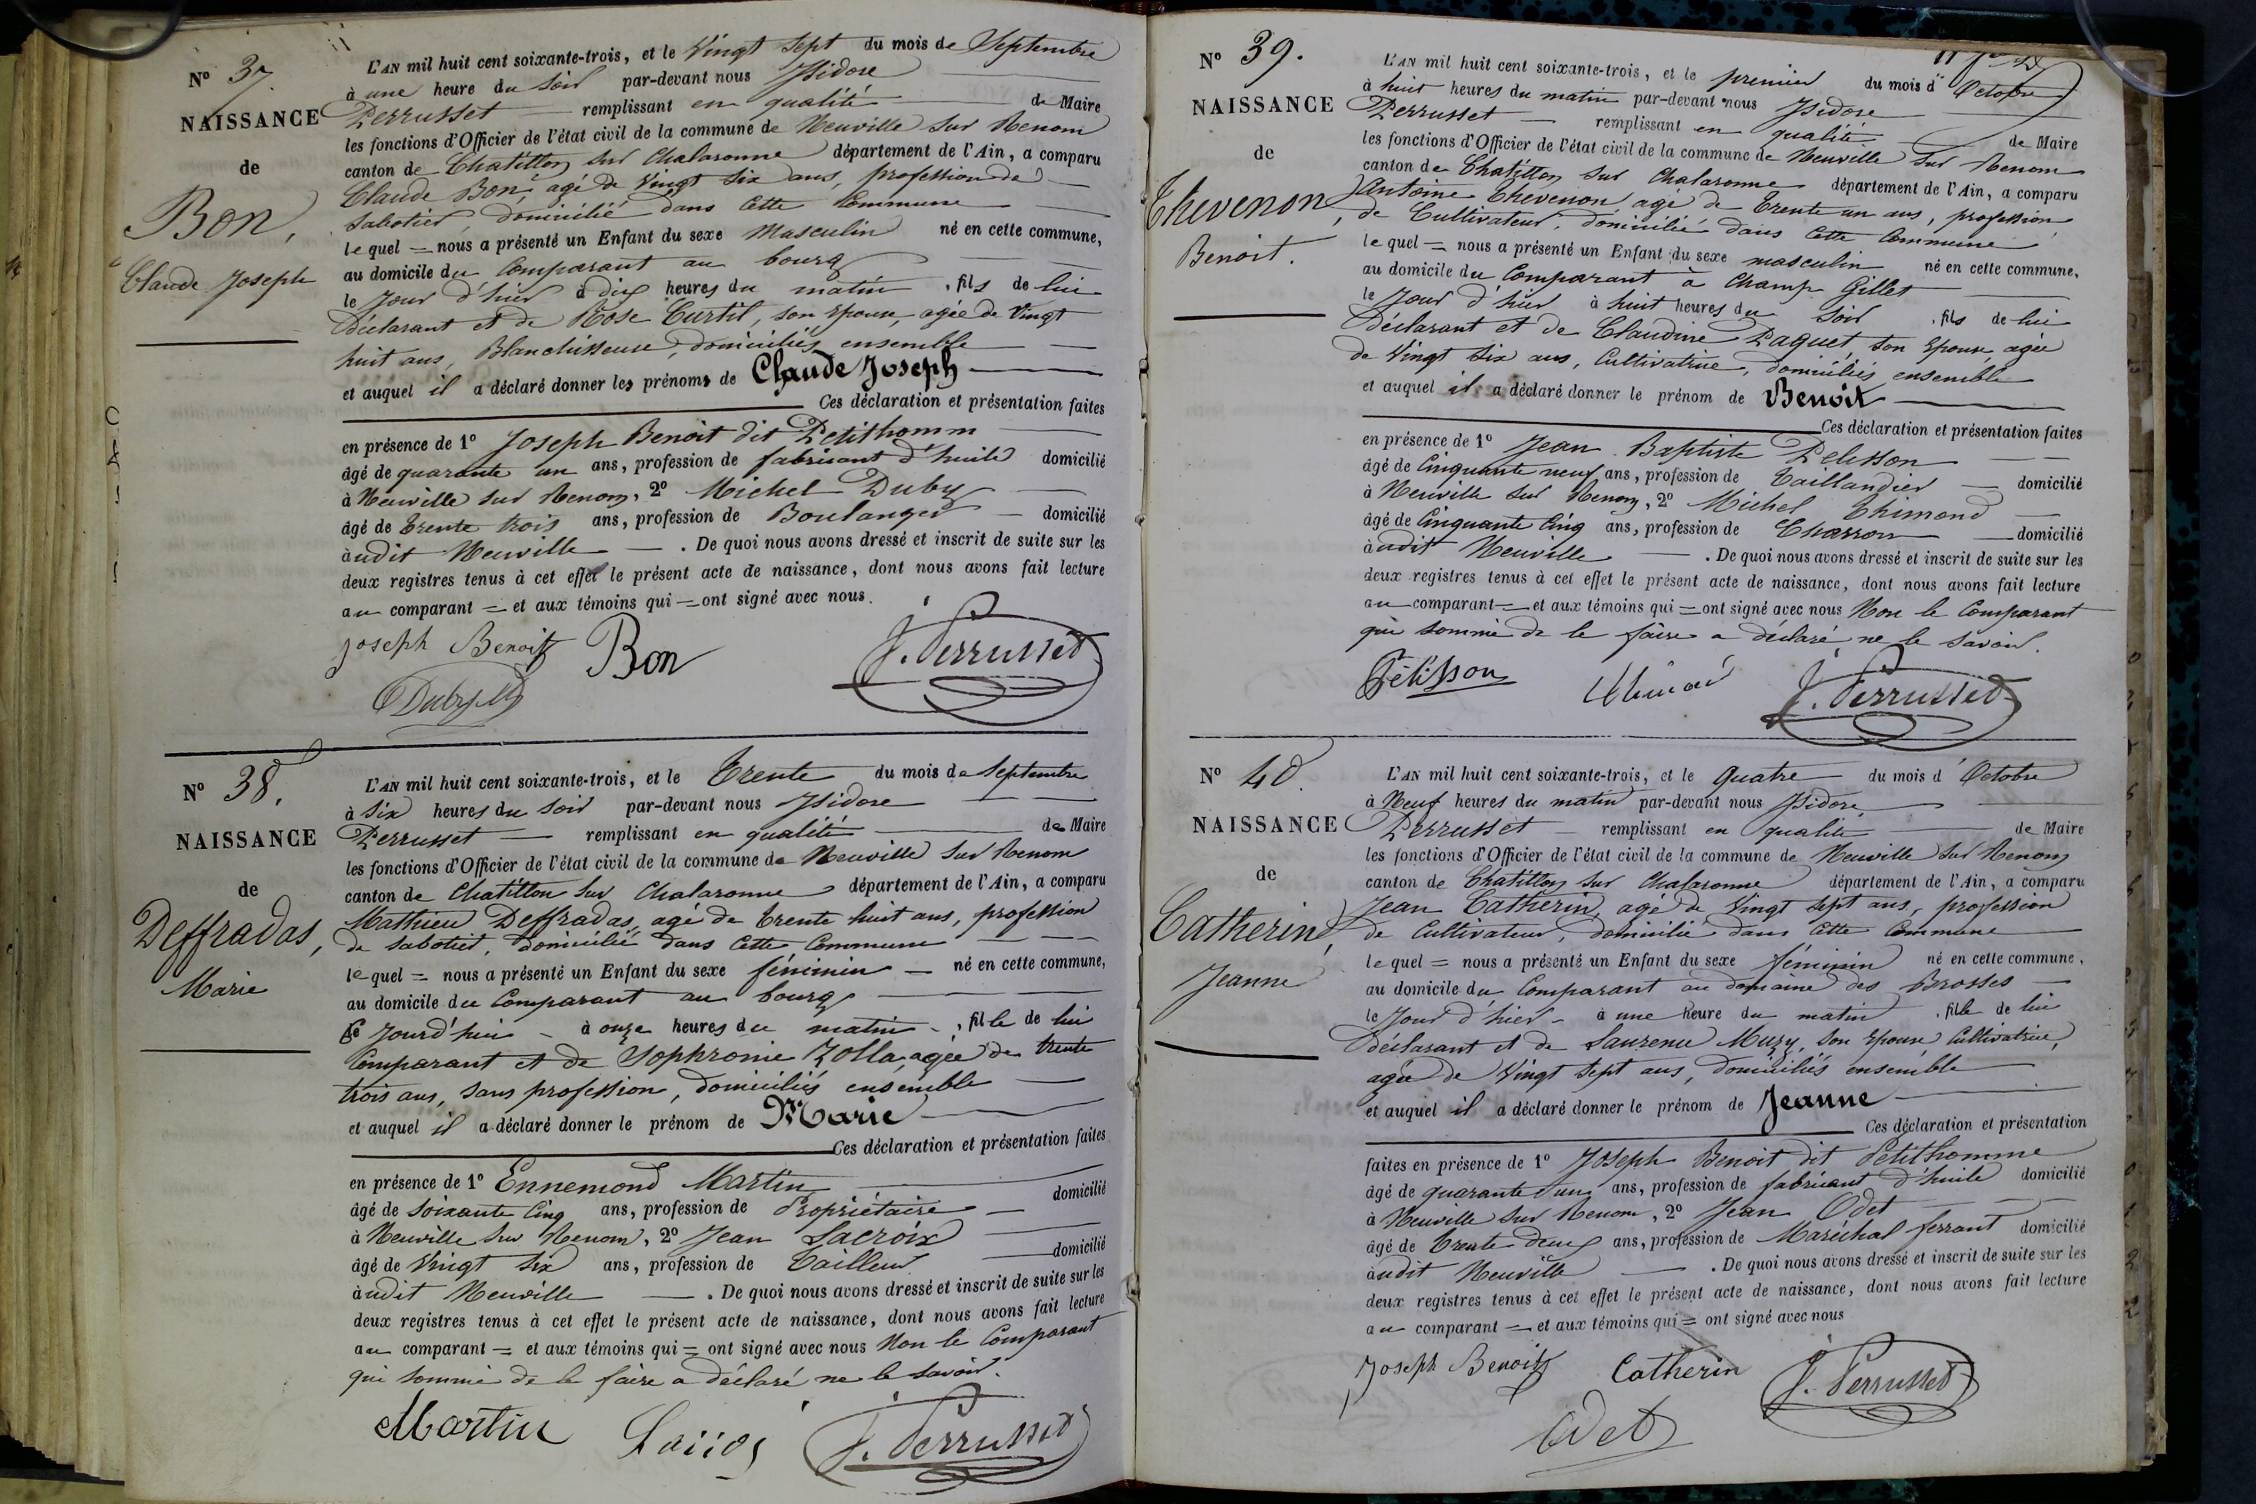 N° 37.
NAISSANCE
de
Bon,
Claude Joseph
L'AN mil huit cent soixante-trois, et le Vingt sept du mois de Septembre
à une heure du Soir par-devant nous Isidore
Perrusset remplissant en qualité de Maire
les fonctions d'Officier de l'état civil de la commune de Neuville sur Renom
canton de Chatillon sur Chalaronne département de l'Ain, a comparu
Claude Bon, agé de Vingt Six ans, profession de
Sabotier, domicilié dans cette Commune
le quel = nous a présenté un Enfant du sexe Masculin né en cette commune,
au domicile du Comparant au bourg
le Jour d'hier à dix heures du matin , fils de lui
déclarant et de Rose Curtil, son Epouse, agée de Vingt
huit ans, Blanchisseuse, domiciliés ensemble
et auquel il a déclaré donner les prénoms de Claude Joseph
Ces déclaration et présentation faites
en présence de 1° Joseph Benoit dit Petithomm
âgé de quarante un ans, profession de fabricant d'huile domicilié
à Neuville sur Renom, 2° Michel Duby
âgé de trente trois ans, profession de Boulanger domicilié
àudit Neuville . De quoi nous avons dressé et inscrit de suite sur les
deux registres tenus à cet effet le présent acte de naissance, dont nous avons fait lecture
au comparant = et aux témoins qui = ont signé avec nous.
Joseph Benoit Bon J. Perrusset
Duby
N° 38.
NAISSANCE
de
Deffradas,
Marie
L'AN mil huit cent soixante-trois, et le Trente du mois de Septembre
à Six heures du Soir par-devant nous Isidore
Perrusset remplissant en qualité de Maire
les fonctions d'Officier de l'état civil de la commune de Neuville sur Renom
canton de Chatillon sur Chalaronne département de l'Ain, a comparu
Mathieu Deffradas, agé de trente huit ans, profession
de sabotier, domicilié dans cette Commune
le quel = nous a présenté un Enfant du sexe féminin né en cette commune,
au domicile du Comparant au bourg
Ce Jourd'hui à onze heures du matin , fille de lui
Comparant et de Sophronie Zolla, agée de trente
trois ans, sans profession, domiciliés ensemble
et auquel il a déclaré donner le prénom de Marie
Ces déclaration et présentation faites
en présence de 1° Ennemond Martin
âgé de soixante Cinq ans, profession de Propriétaire domicilié
à Neuville sur Renom, 2° Jean Lacroix
âgé de Vingt Six ans, profession de Tailleur domicilié
àudit Neuville . De quoi nous avons dressé et inscrit de suite sur les
deux registres tenus à cet effet le présent acte de naissance, dont nous avons fait lecture
au comparant = et aux témoins qui = ont signé avec nous Non le Comparant
qui sommé de le faire a déclaré ne le savoir.
Martin J. Perrusset
N° 39.
NAISSANCE
de
Thevenon,
Benoit.
L'AN mil huit cent soixante-trois, et le premier du mois d' Octobre
à huit heures du matin par-devant nous Isidore
Perrusset remplissant en qualité de Maire
les fonctions d'Officier de l'état civil de la commune de Neuville sur Renom
canton de Chatillon sur Chalaronne département de l'Ain, a comparu
Antoine Thevenon agé de trente un ans, profession
de Cultivateur, domicilié dans cette Commune
le quel = nous a présenté un Enfant du sexe masculin né en cette commune,
au domicile du Comparant à Champ Gillet
le Jour d'hier à huit heures du Soir , fils de lui
déclarant et de Claudine Paquet son Epouse, agée
de Vingt Six ans, Cultivatrice, domiciliés ensemble
et auquel il a déclaré donner le prénom de Benoit
Ces déclaration et présentation faites
en présence de 1° Jean Baptiste Pelisson
âgé de Cinquante neuf ans, profession de Taillandier domicilié
à Neuville sur Renom, 2° Michel Thimond
âgé de Cinquante Cinq ans, profession de Charron domicilié
àudit Neuville . De quoi nous avons dressé et inscrit de suite sur les
deux registres tenus à cet effet le présent acte de naissance, dont nous avons fait lecture
au comparant = et aux témoins qui = ont signé avec nous Non le Comparant
qui sommé de le faire a déclaré ne le savoir.
Pélisson J. Perrusset
N° 40.
NAISSANCE
de
Catherin,
Jeanne
L'AN mil huit cent soixante-trois, et le quatre du mois d' Octobre
à Neuf heures du matin par-devant nous Isidore
Perrusset remplissant en qualité de Maire
les fonctions d'Officier de l'état civil de la commune de Neuville sur Renom
canton de Chatillon sur Chalaronne département de l'Ain, a comparu
Jean Catherin, agé de Vingt sept ans, profession
de Cultivateur, domicilié dans cette Commune
le quel = nous a présenté un Enfant du sexe féminin né en cette commune,
au domicile du Comparant au domaine des Brosses
le Jour d'hier à une heure du matin , fille de lui
déclarant et de Laurence Muzy, son Epouse Cultivatrice,
agée de Vingt sept ans, domiciliés ensemble
et auquel il a déclaré donner le prénom de Jeanne
Ces déclaration et présentation
faites en présence de 1° Joseph Benoit dit Petithomme
âgé de quarante un ans, profession de fabricant d'huile domicilié
à Neuville sur Renom, 2° Jean Odet
âgé de trente deux ans, profession de Maréchal ferrant domicilié
àudit Neuville . De quoi nous avons dressé et inscrit de suite sur les
deux registres tenus à cet effet le présent acte de naissance, dont nous avons fait lecture
au comparant = et aux témoins qui = ont signé avec nous
Joseph Benoit Catherin J. Perrusset
Odet